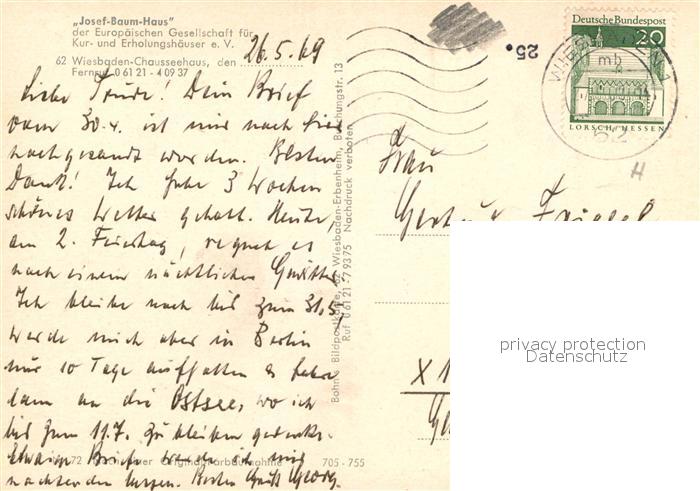 „Josef-Baum-Haus"
der Europäischen Gesellschaft für
Kur- und Erholungshäuser e. V.
62 Wiesbaden-Chausseehaus, den 26.5.69
Fernruf 0 61 21 - 4 09 37
Liebe Trude! Dein Brief
vom 30.4. ist mir nach hier
nachgesandt worden. Besten
Dank! Ich habe 3 Wochen
schönes Wetter gehabt. Heute,
am 2. Feiertag, regnet es
nach einem nächtlichen Gewitter.
Ich bleibe noch bis zum 31.5,
werde mich aber in Berlin
nur 10 Tage aufhalten u. fahre
dann an die Ostsee, wo ich
bis zum 11.7. zu bleiben gedenke.
Etwaige Briefe werde ich mir
nachsenden lassen. Besten Gruß Georg.
72
705 - 755
Bohne Bildpostkarte, 62 Wiesbaden-Erbenheim, Buchungstr. 13
Ruf 0 61 21 - 7 93 75 Nachdruck verboten
25.
Deutsche Bundespost
20
LORSCH/HESSEN
WIESBADEN
mb
62
H
Frau
X 1
privacy protection
Datenschutz